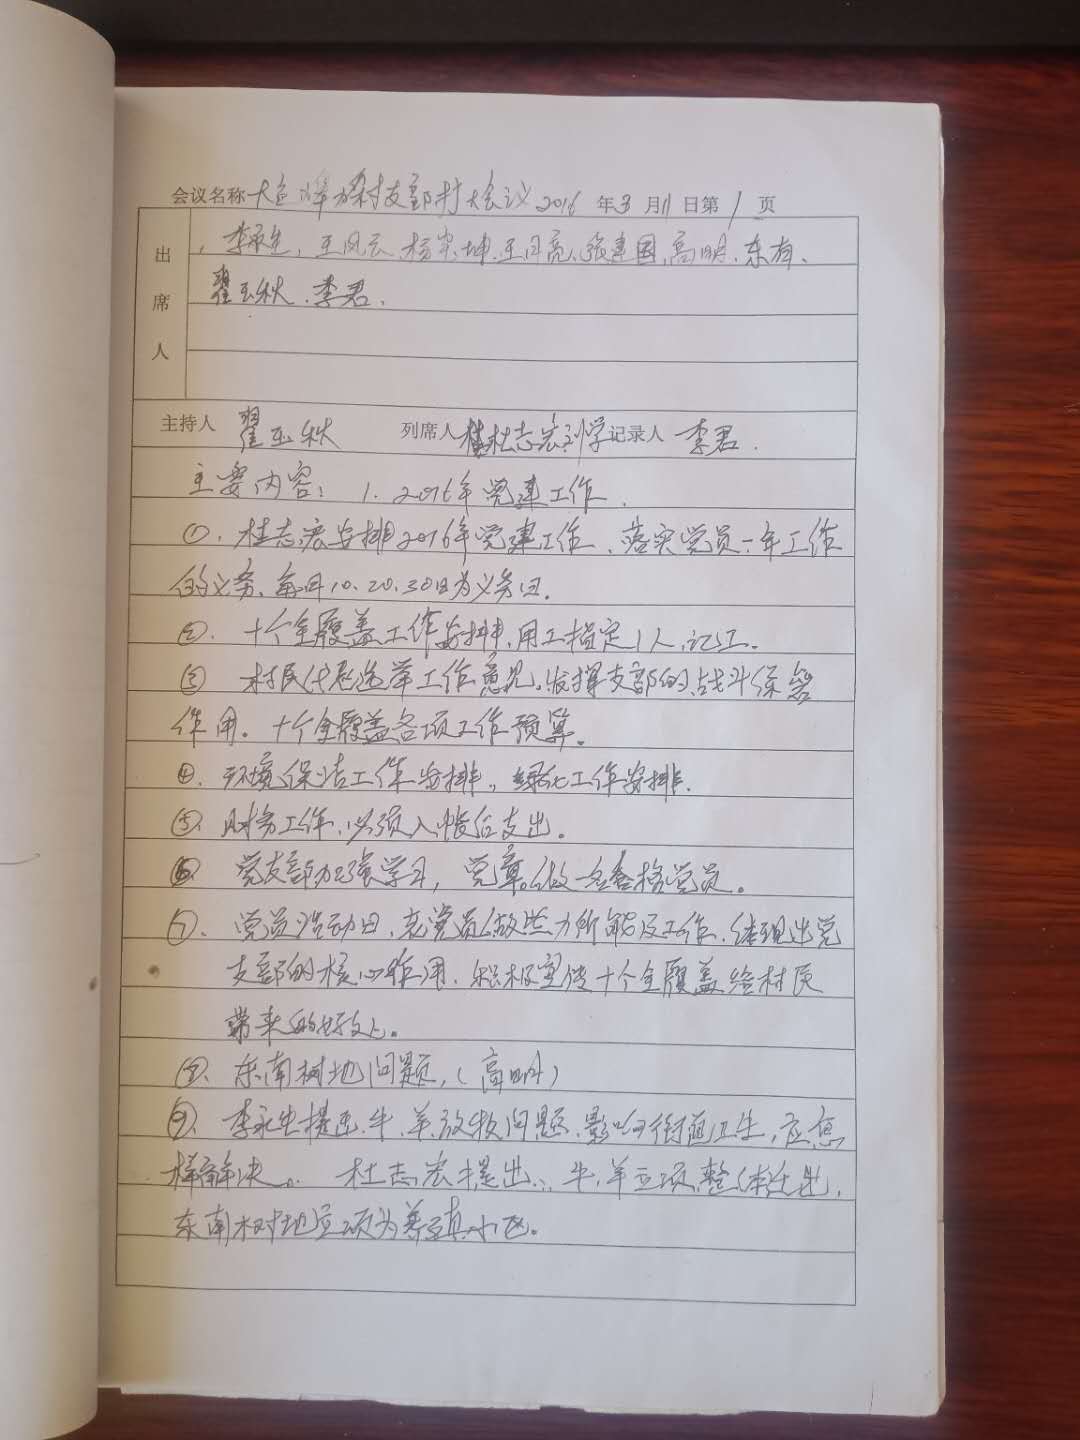 会议名称 村支部村大会议 2016 年 3 月 11 日第 1 页
出席人
李永生,王凤云、杨 坤、王月亮、张建国、高明、东有、
翟玉秋、李君.
主持人 翟玉秋 列席人 杜志宏 学 记录人 李君.
主要内容: 1. 2016年党建工作.
①. 杜志宏安排2016年党建工作、落实党员一年工作
的义务、每月10.20.30日为义务日.
②. 十个全覆盖工作安排,用工指定1人,记工.
③ 村民代表选举工作意见。发挥支部的战斗堡垒
作用。十个全覆盖各项工作预算。
④. 环境保洁工作安排,绿化工作安排.
⑤、财务工作,必须入帐后支出。
⑥ 党支部加强学习, 党章。做一名合格党员。
⑦、党员活动日,党员做些力所能及工作、体现出党
支部的核心作用.积极宣传十个全覆盖给村民
带来的好处。
⑧、东南树地问题,(高明)
⑨、李永生提出.牛.羊放牧问题.影响街道卫生,应怎
样解决。 杜志宏提出:牛.羊立项,整体迁出,
东南树地立项为养殖小区。